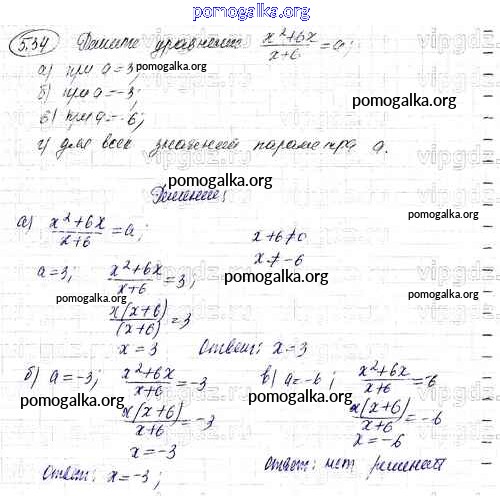 pomogalka.org
5.34 Решите уравнение x²+6x/x+6 = a;
а) при a=3; pomogalka.org
б) при a=-3;
в) при a=-6; pomogalka.org
г) для всех значений параметра a.
Решение:
pomogalka.org
а) x²+6x/x+6 = a; x+6≠0
pomogalka.org
x≠-6
a=3; x²+6x/x+6 = 3;
pomogalka.org pomogalka.org
x(x+6)/(x+6) = 3
x=3 Ответ: x=3
pomogalka.org
б) a=-3; x²+6x/x+6 = -3 в) a=-6; x²+6x/x+6 = -6
pomogalka.org pomogalka.org
x(x+6)/x+6 = -3 x(x+6)/x+6 = -6
x=-3 x=-6
Ответ: x=-3; Ответ: нет решений
vipgdz.ru